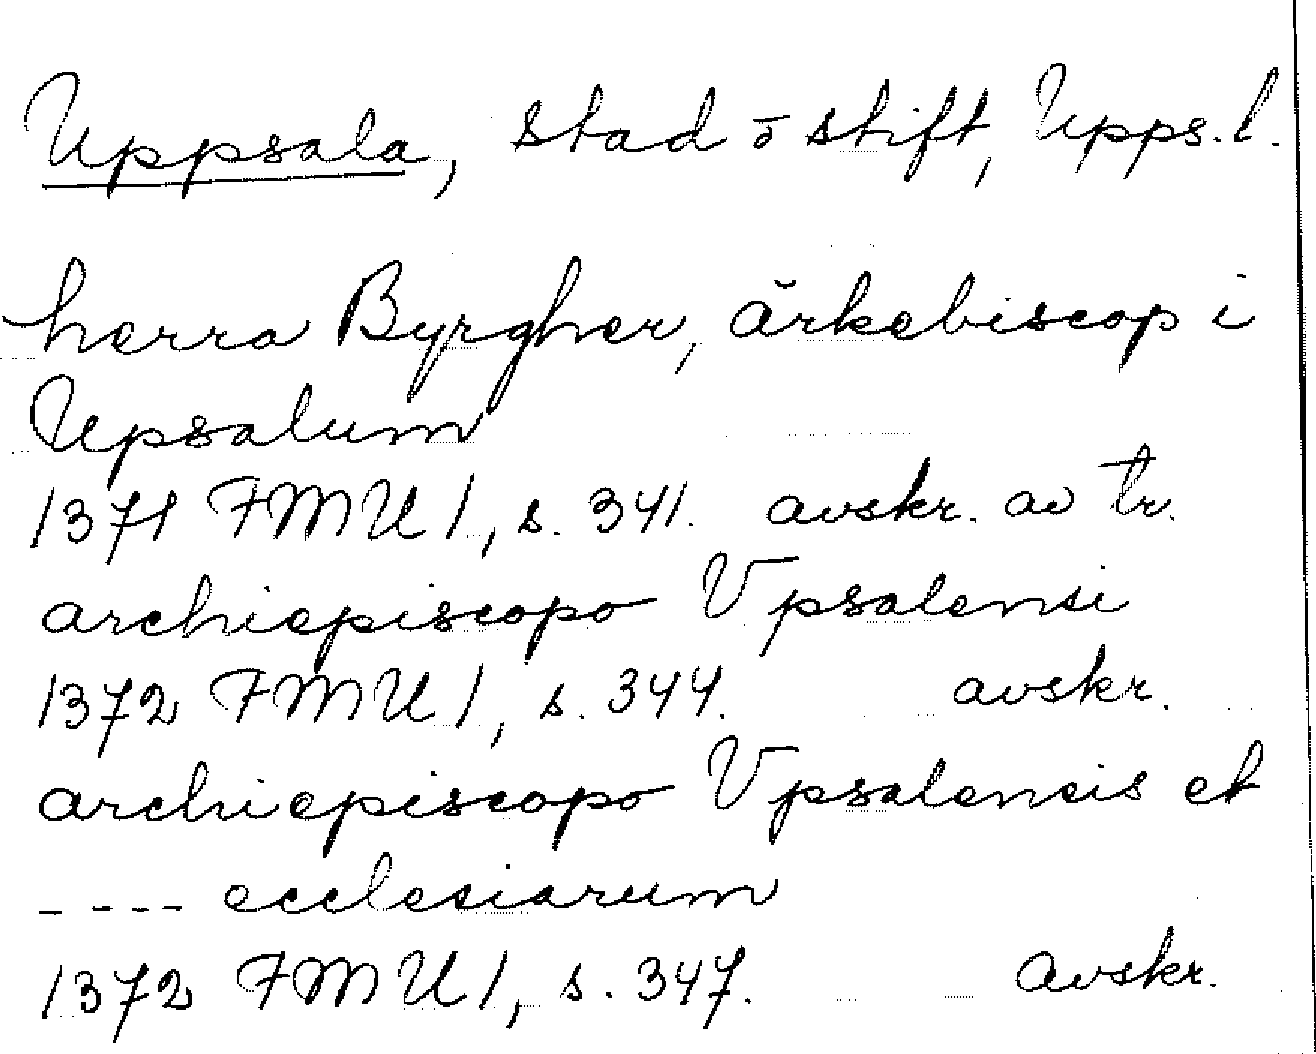 Uppsala, stad o stift, Upps. l.
herra Byrgher, ärkebiscop i
Upsalum
1371 FMU 1, s. 341. avskr. av tr.
archiepiscopo Vpsalensi
1372 FMU 1, s. 344. avskr.
archiepiscopo Vpsalensis et
---- ecclesiarum
1372 FMU 1, s. 347. avskr.